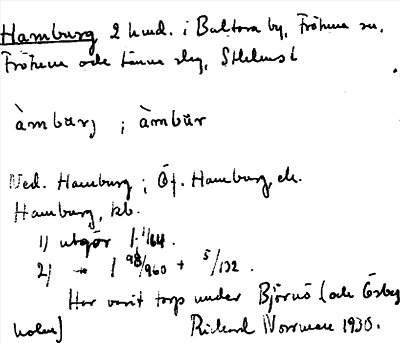 Hamburg 2 hmd. i Baltora by, Frötuna sn,
Frötuna och Länna skg, Sthlms l
àmbur̨ ; àmbùr
Ned. Hamburg ; Öf. Hamburg, ek.
Hamburg, kb.
1) utgör 1 1/64.
2) — " — 1 98/960 + 5/132.
Har varit torp under Björnö (och Östby
holm) Rickard Norrman 1930.